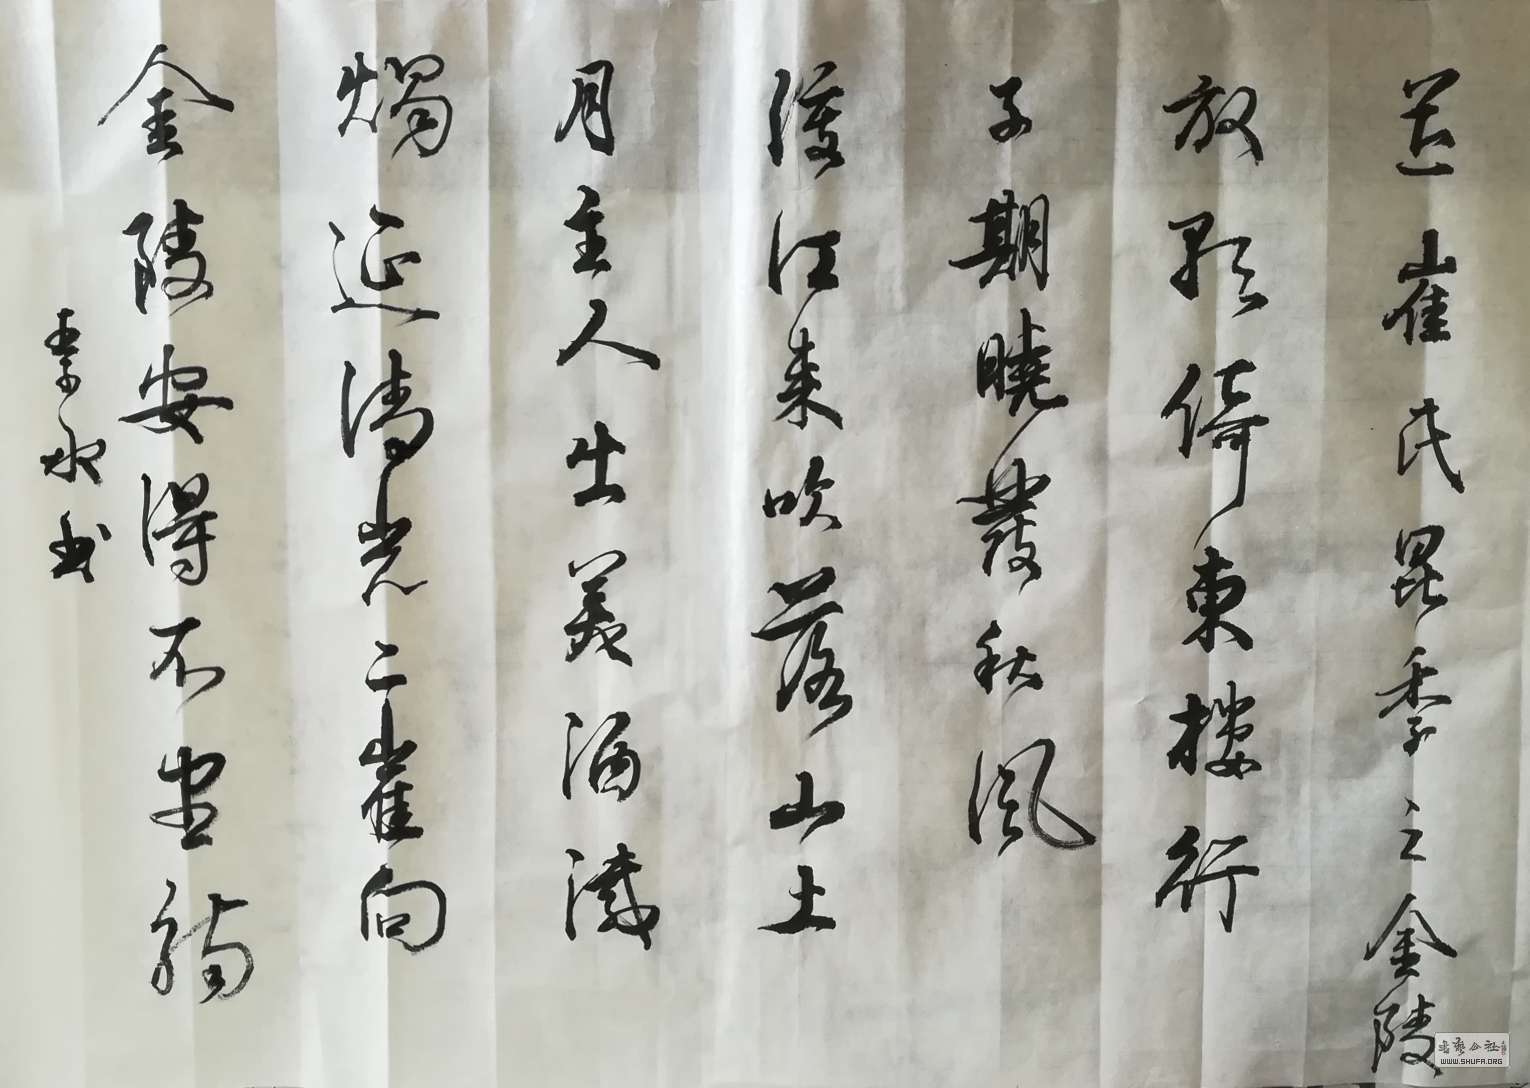 送崔氏昆季之金陵
放歌倚東樓行
子期曉發秋風
渡江来吹落山上
月主人出美酒滅
燭延清光二崔向
金陵安得不盡觴
书
WWW.SHUFA.ORG